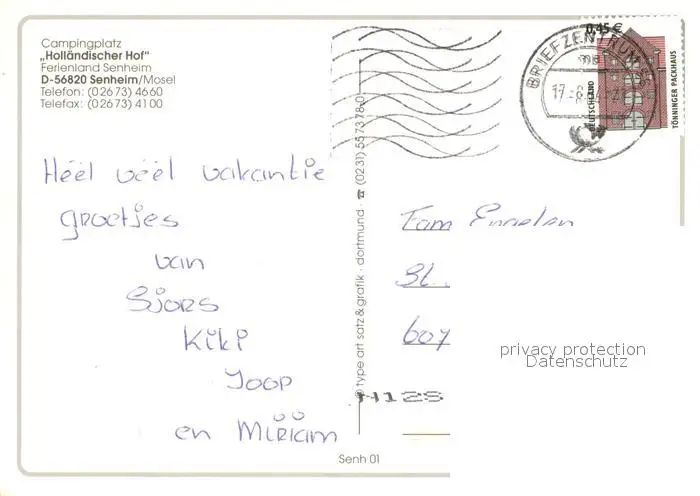 Campingplatz
„Holländischer Hof"
Ferienland Senheim
D-56820 Senheim/Mosel
Telefon: (02673) 4660
Telefax: (02673) 4100
Héél véél vakantie
groetjes
van
Sjors
Kiki
Joop
en Miriam
© type art satz & grafik · dortmund · ☎ (0231) 557378-0
Senh 01
BRIEFZENTRUM
17.-8.
0,45 €
DEUTSCHLAND
TÖNNINGER PACKHAUS
Fam
St.
607
H128
privacy protection
Datenschutz